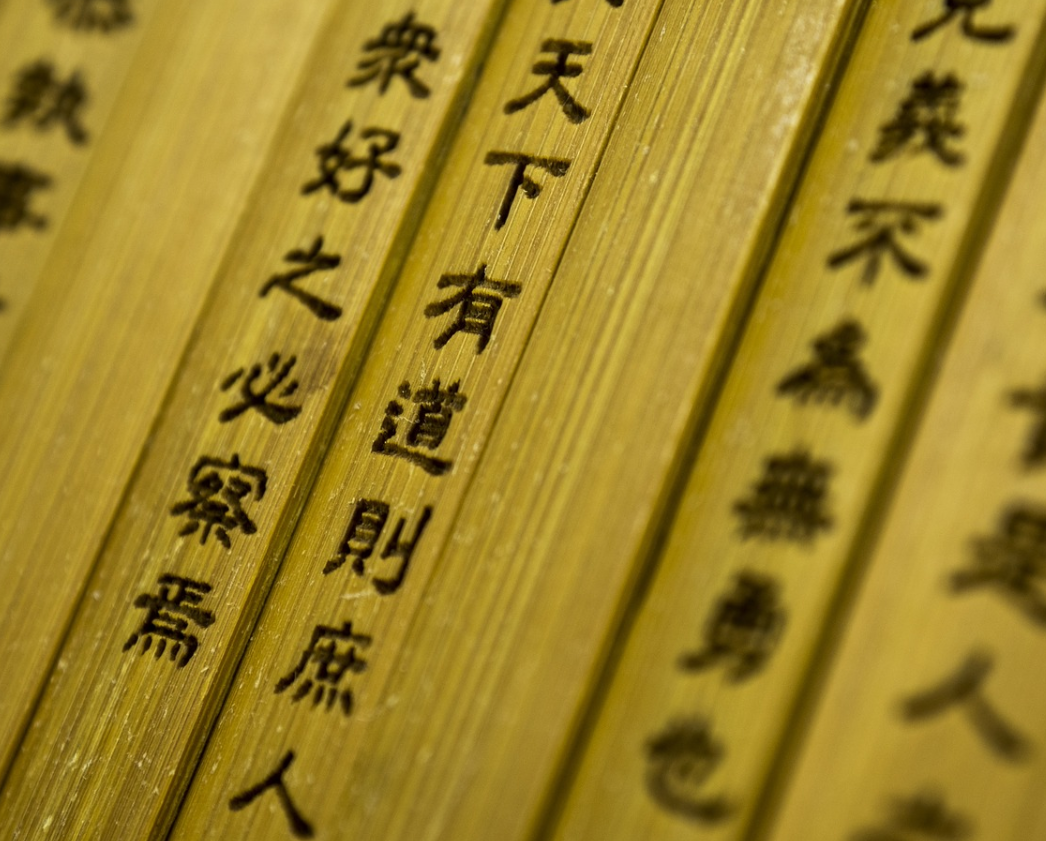 人
見義不為無勇也
天下有道則庶人
衆好之必察焉
恭執事